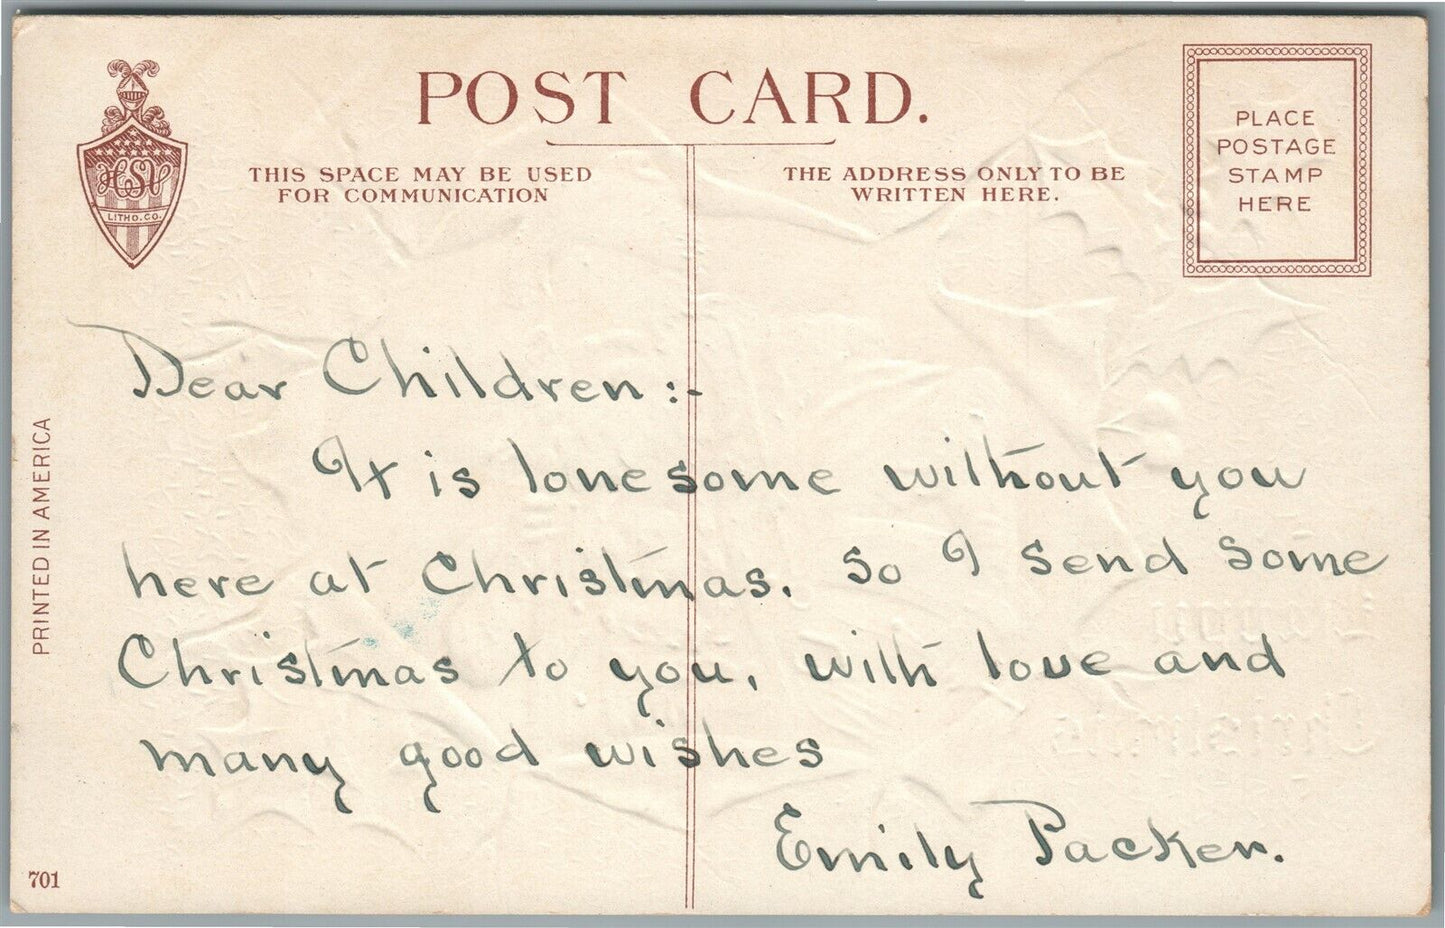 POST CARD.
THIS SPACE MAY BE USED
FOR COMMUNICATION
THE ADDRESS ONLY TO BE
WRITTEN HERE.
PLACE
POSTAGE
STAMP
HERE
HSV
LITHO.CO.
PRINTED IN AMERICA
Dear Children:-
It is lonesome without you
here at Christmas. So I send some
Christmas to you, with love and
many good wishes
Emily Packer.
701